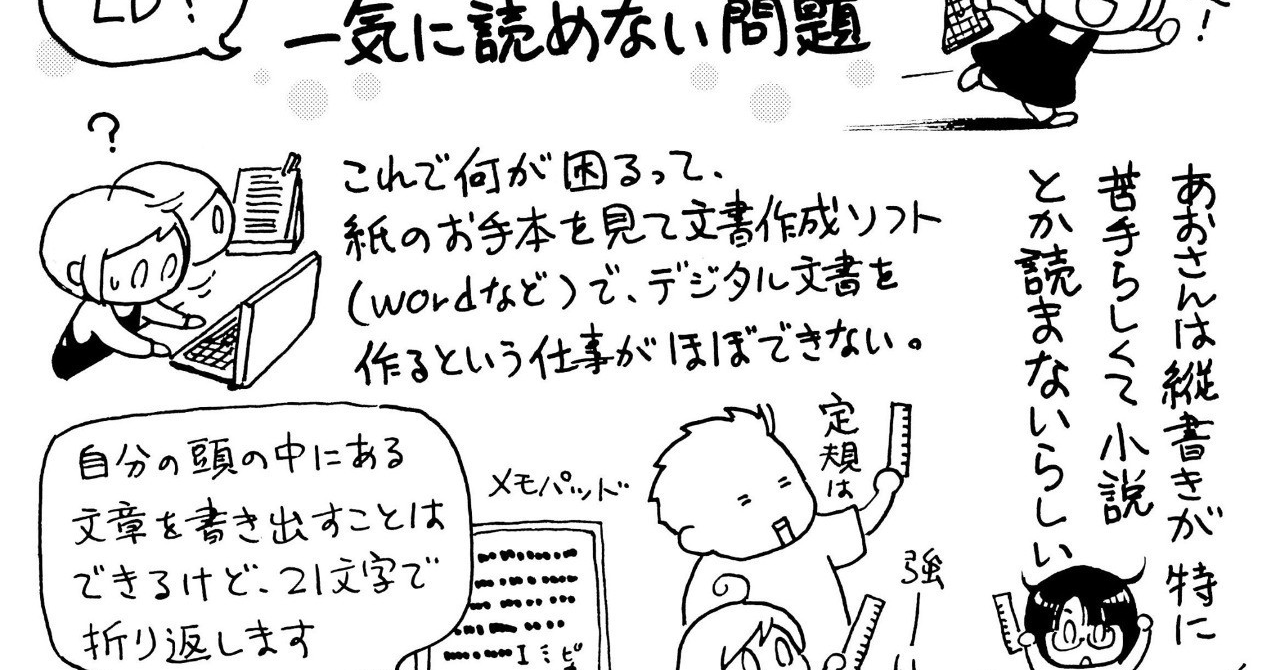 LD?
一気に読めない問題
!
?
これで何が困るって、
紙のお手本を見て文書作成ソフト
(wordなど)で、デジタル文書を
作るという仕事がほぼできない。
あおさんは縦書きが特に
苦手らしくて小説
とか読まないらしい
自分の頭の中にある
文章を書き出すことは
できるけど、21文字で
折り返します
メモパッド
定規は
強